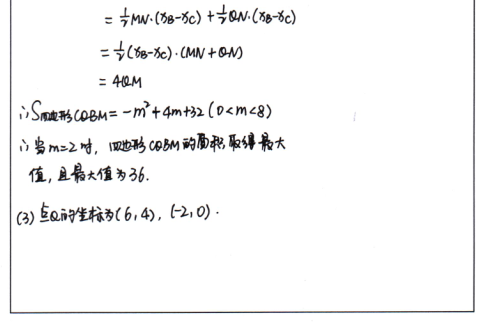 = ½MN·(xB-xC) + ½QN·(xB-xC)
= ½(xB-xC)·(MN+QN)
= 4QM
∴S四边形CQBM = -m²+4m+32 (0<m<8)
∴当m=2时, 四边形CQBM的面积取得最大
值,且最大值为36.
(3) 点Q的坐标为(6,4), (-2,0).